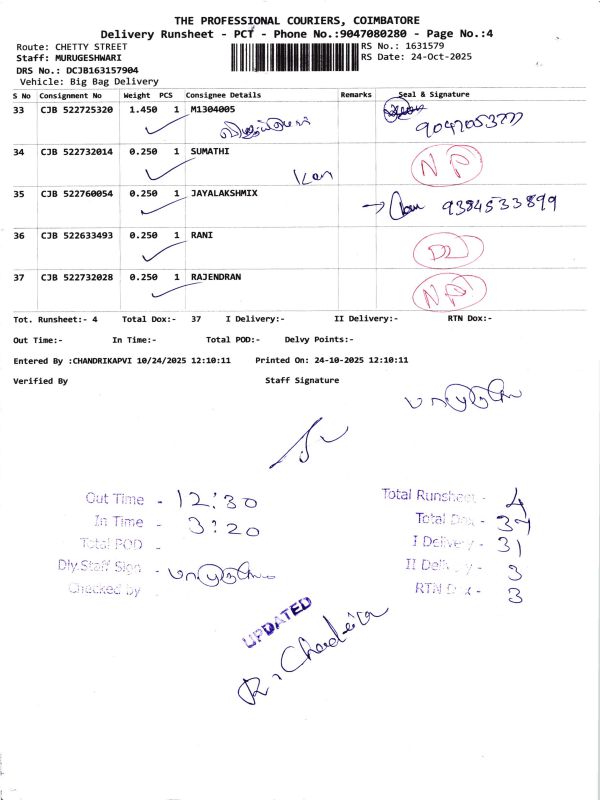 THE PROFESSIONAL COURIERS, COIMBATORE
Delivery Runsheet - PCT - Phone No.:9047080280 - Page No.:4
Route: CHETTY STREET
RS No.: 1631579
Staff: MURUGESHWARI
RS Date: 24-Oct-2025
DRS No.: DCJB163157904
Vehicle: Big Bag Delivery
S No Consignment No Weight PCS Consignee Details Remarks Seal & Signature
33 CJB 522725320 1.450 1 M1304005
34 CJB 522732014 0.250 1 SUMATHI NP
35 CJB 522760054 0.250 1 JAYALAKSHMIX 9384533899
36 CJB 522633493 0.250 1 RANI DL
37 CJB 522732028 0.250 1 RAJENDRAN NP
Tot. Runsheet:- 4 Total Dox:- 37 I Delivery:- II Delivery:- RTN Dox:-
Out Time:- In Time:- Total POD:- Delvy Points:-
Entered By :CHANDRIKAPVI 10/24/2025 12:10:11 Printed On: 24-10-2025 12:10:11
Verified By Staff Signature
Out Time - 12:30 Total Runsheet - 4
In Time - 3:20 Total Dox - 37
Total POD - I Delivery - 31
Dly.Staff Sign - II Delivery - 3
Checked by RTN Dox - 3
UPDATED